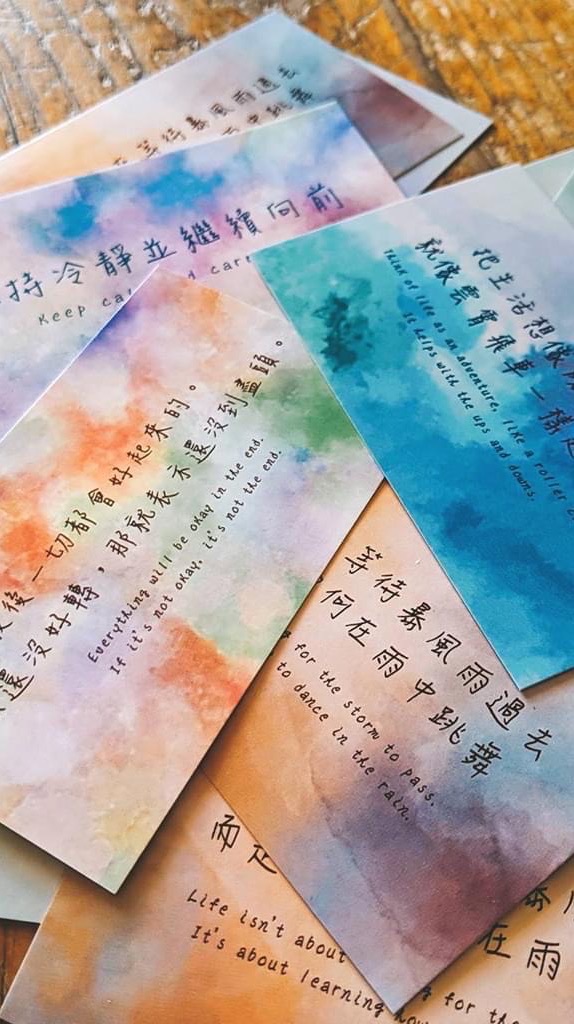 等待暴風雨過去
雨中跳舞
持冷靜並繼續向前
Keep
把生活想像
就像雲霄飛車一樣
Think of life as an adventure, like a roller
It helps with the ups and downs.
後一切都會好起來的。
還沒好轉，那就表示還沒到盡頭。
Everything will be okay in the end.
If it's not okay, it's not the end.
等待暴風雨過去
何在雨中跳舞
for the storm to pass.
to dance in the rain.
而是
Life isn't about
It's about learning
for the
在雨